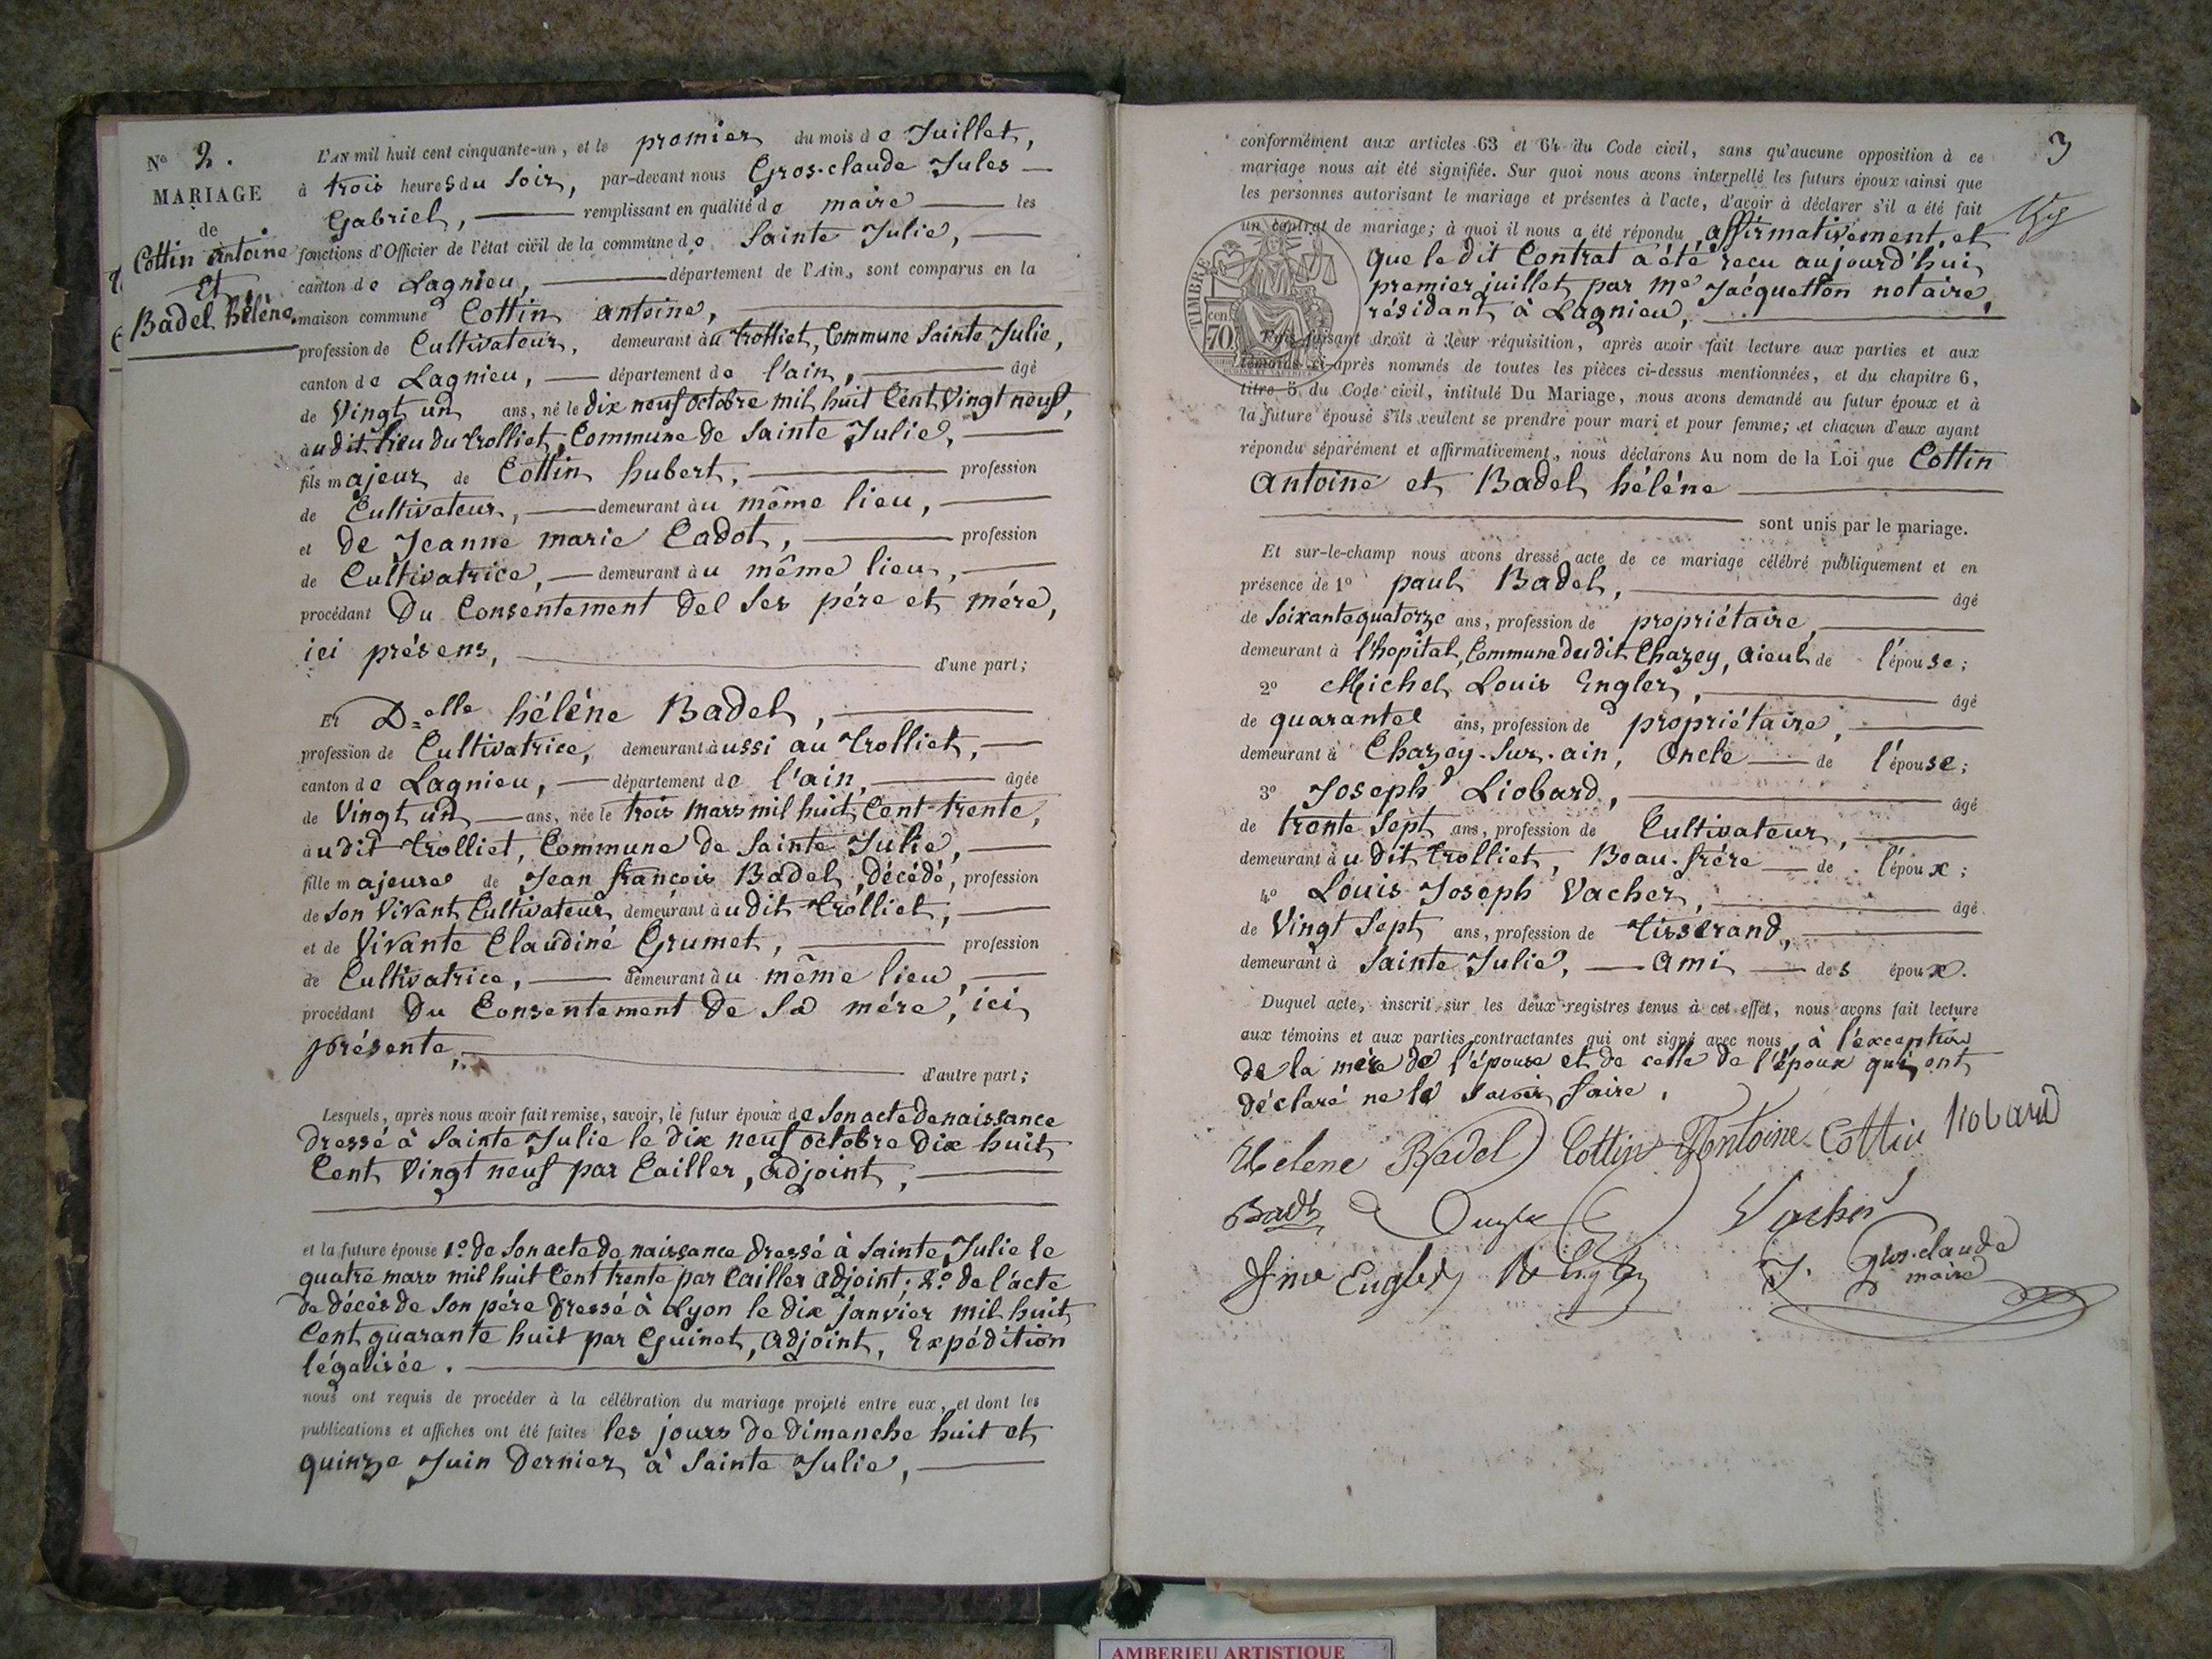 N° 2.
MARIAGE
de
Cottin Antoine
et
Badel hélène.
L'AN mil huit cent cinquante-un, et le premier du mois de Juillet,
à trois heures du soir, par-devant nous Gros-claude Jules
Gabriel, remplissant en qualité de maire les
fonctions d'Officier de l'état civil de la commune de Sainte Julie,
canton de Lagnieu, département de l'Ain, sont comparus en la
maison commune Cottin Antoine,
profession de Cultivateur, demeurant au trolliet, Commune Sainte Julie,
canton de Lagnieu, département de l'ain, âgé
de Vingt un ans, né le dix neuf octobre mil huit Cent Vingt neuf,
au dit lieu du trolliet, Commune de Sainte Julie,
fils majeur de Cottin hubert, profession
de Cultivateur, demeurant au même lieu,
et de Jeanne marie Cadot, profession
de Cultivatrice, demeurant au même lieu,
procédant Du Consentement del ses père et mère,
ici présens, d'une part;
Et D.elle hélène Badel,
profession de Cultivatrice, demeurant aussi au trolliet,
canton de Lagnieu, département de l'ain, âgée
de Vingt un ans, née le trois mars mil huit Cent trente,
au dit trolliet, Commune de Sainte Julie,
fille majeure de Jean françois Badel, décédé, profession
de son vivant Cultivateur demeurant au dit trolliet,
et de Vivante Claudine Grumet, profession
de Cultivatrice, demeurant au même lieu,
procédant Du Consentement de sa mère, ici
présente, d'autre part;
Lesquels, après nous avoir fait remise, savoir, le futur époux de son acte de naissance
dressé à Sainte Julie le dix neuf octobre dix huit
Cent Vingt neuf par Cailler, adjoint,
et la future épouse 1° de son acte de naissance dressé à Sainte Julie le
quatre mars mil huit Cent trente par Cailler adjoint; 2° de l'acte
de décès de son père dressé à Lyon le dix janvier mil huit
Cent quarante huit par Guinet, adjoint, Expédition
légalisée.
nous ont requis de procéder à la célébration du mariage projeté entre eux, et dont les
publications et affiches ont été faites les jours de dimanche huit et
quinze Juin dernier à Sainte Julie,
3
conformément aux articles 63 et 64 du Code civil, sans qu'aucune opposition à ce
mariage nous ait été signifiée. Sur quoi nous avons interpellé les futurs époux ainsi que
les personnes autorisant le mariage et présentes à l'acte, d'avoir à déclarer s'il a été fait
un contrat de mariage; à quoi il nous a été répondu affirmativement, et
que le dit Contrat a été reçu aujourd'hui
premier juillet par me Jacquetton notaire,
résidant à Lagnieu,
TIMBRE
70 cen
faisant droit à leur réquisition, après avoir fait lecture aux parties et aux
témoins ci-après nommés de toutes les pièces ci-dessus mentionnées, et du chapitre 6,
titre 5 du Code civil, intitulé Du Mariage, nous avons demandé au futur époux et à
la future épouse s'ils veulent se prendre pour mari et pour femme; et chacun d'eux ayant
répondu séparément et affirmativement, nous déclarons Au nom de la Loi que Cottin
Antoine et Badel hélène
sont unis par le mariage.
Et sur-le-champ nous avons dressé acte de ce mariage célébré publiquement et en
présence de 1° paul Badel, âgé
de Soixante quatorze ans, profession de propriétaire,
demeurant à l'hopital, Commune dudit Chazey, aieul de l'épouse;
2° Michel Louis Engler, âgé
de quarante ans, profession de propriétaire,
demeurant à Chazey-sur-ain, Oncle de l'épouse;
3° Joseph Liobard, âgé
de trente sept ans, profession de Cultivateur,
demeurant au dit trolliet, Beau-frère de l'époux;
4° Louis Joseph Vacher, âgé
de Vingt Sept ans, profession de Tisserand,
demeurant à Sainte Julie, Ami des époux.
Duquel acte, inscrit sur les deux registres tenus à cet effet, nous avons fait lecture
aux témoins et aux parties contractantes qui ont signé avec nous, à l'exception
de la mère de l'épouse et de celle de l'époux qui ont
déclaré ne le savoir faire.
Helene Badel Cottin Antoine Cottin liobard
Badel Vacher
Engler J. Gros-claude
maire
AMBERIEU ARTISTIQUE